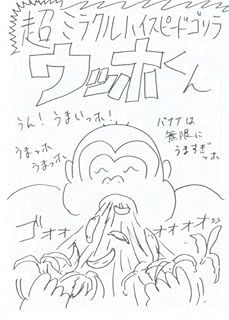 超ミラクルハイスピードゴリラ
ウッホくん
うん!うまいッホ!
うまッホ
うまッホ
バナナは
無限に
うますぎ
ッホ
ゴオォ
オオオオゥゥ